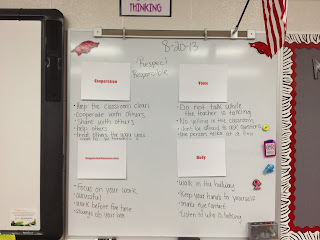 THINKING
8-20-13
Respect
Responsible
Cooperation
• Keep the classroom clean
• cooperate with others
• Share with others
• help others
• treat others the way you
want to be treated
Voice
• Do not talk while
the teacher is talking
• No yelling in the classroom
• don't be afraid to ask questions
• one person speaks at a time
• Focus on your work
• successful
• work before free time
• always do your
Body
• walk in the hallway
• Keep your hands to yourself
• make eye contact
• Listen to who is talking